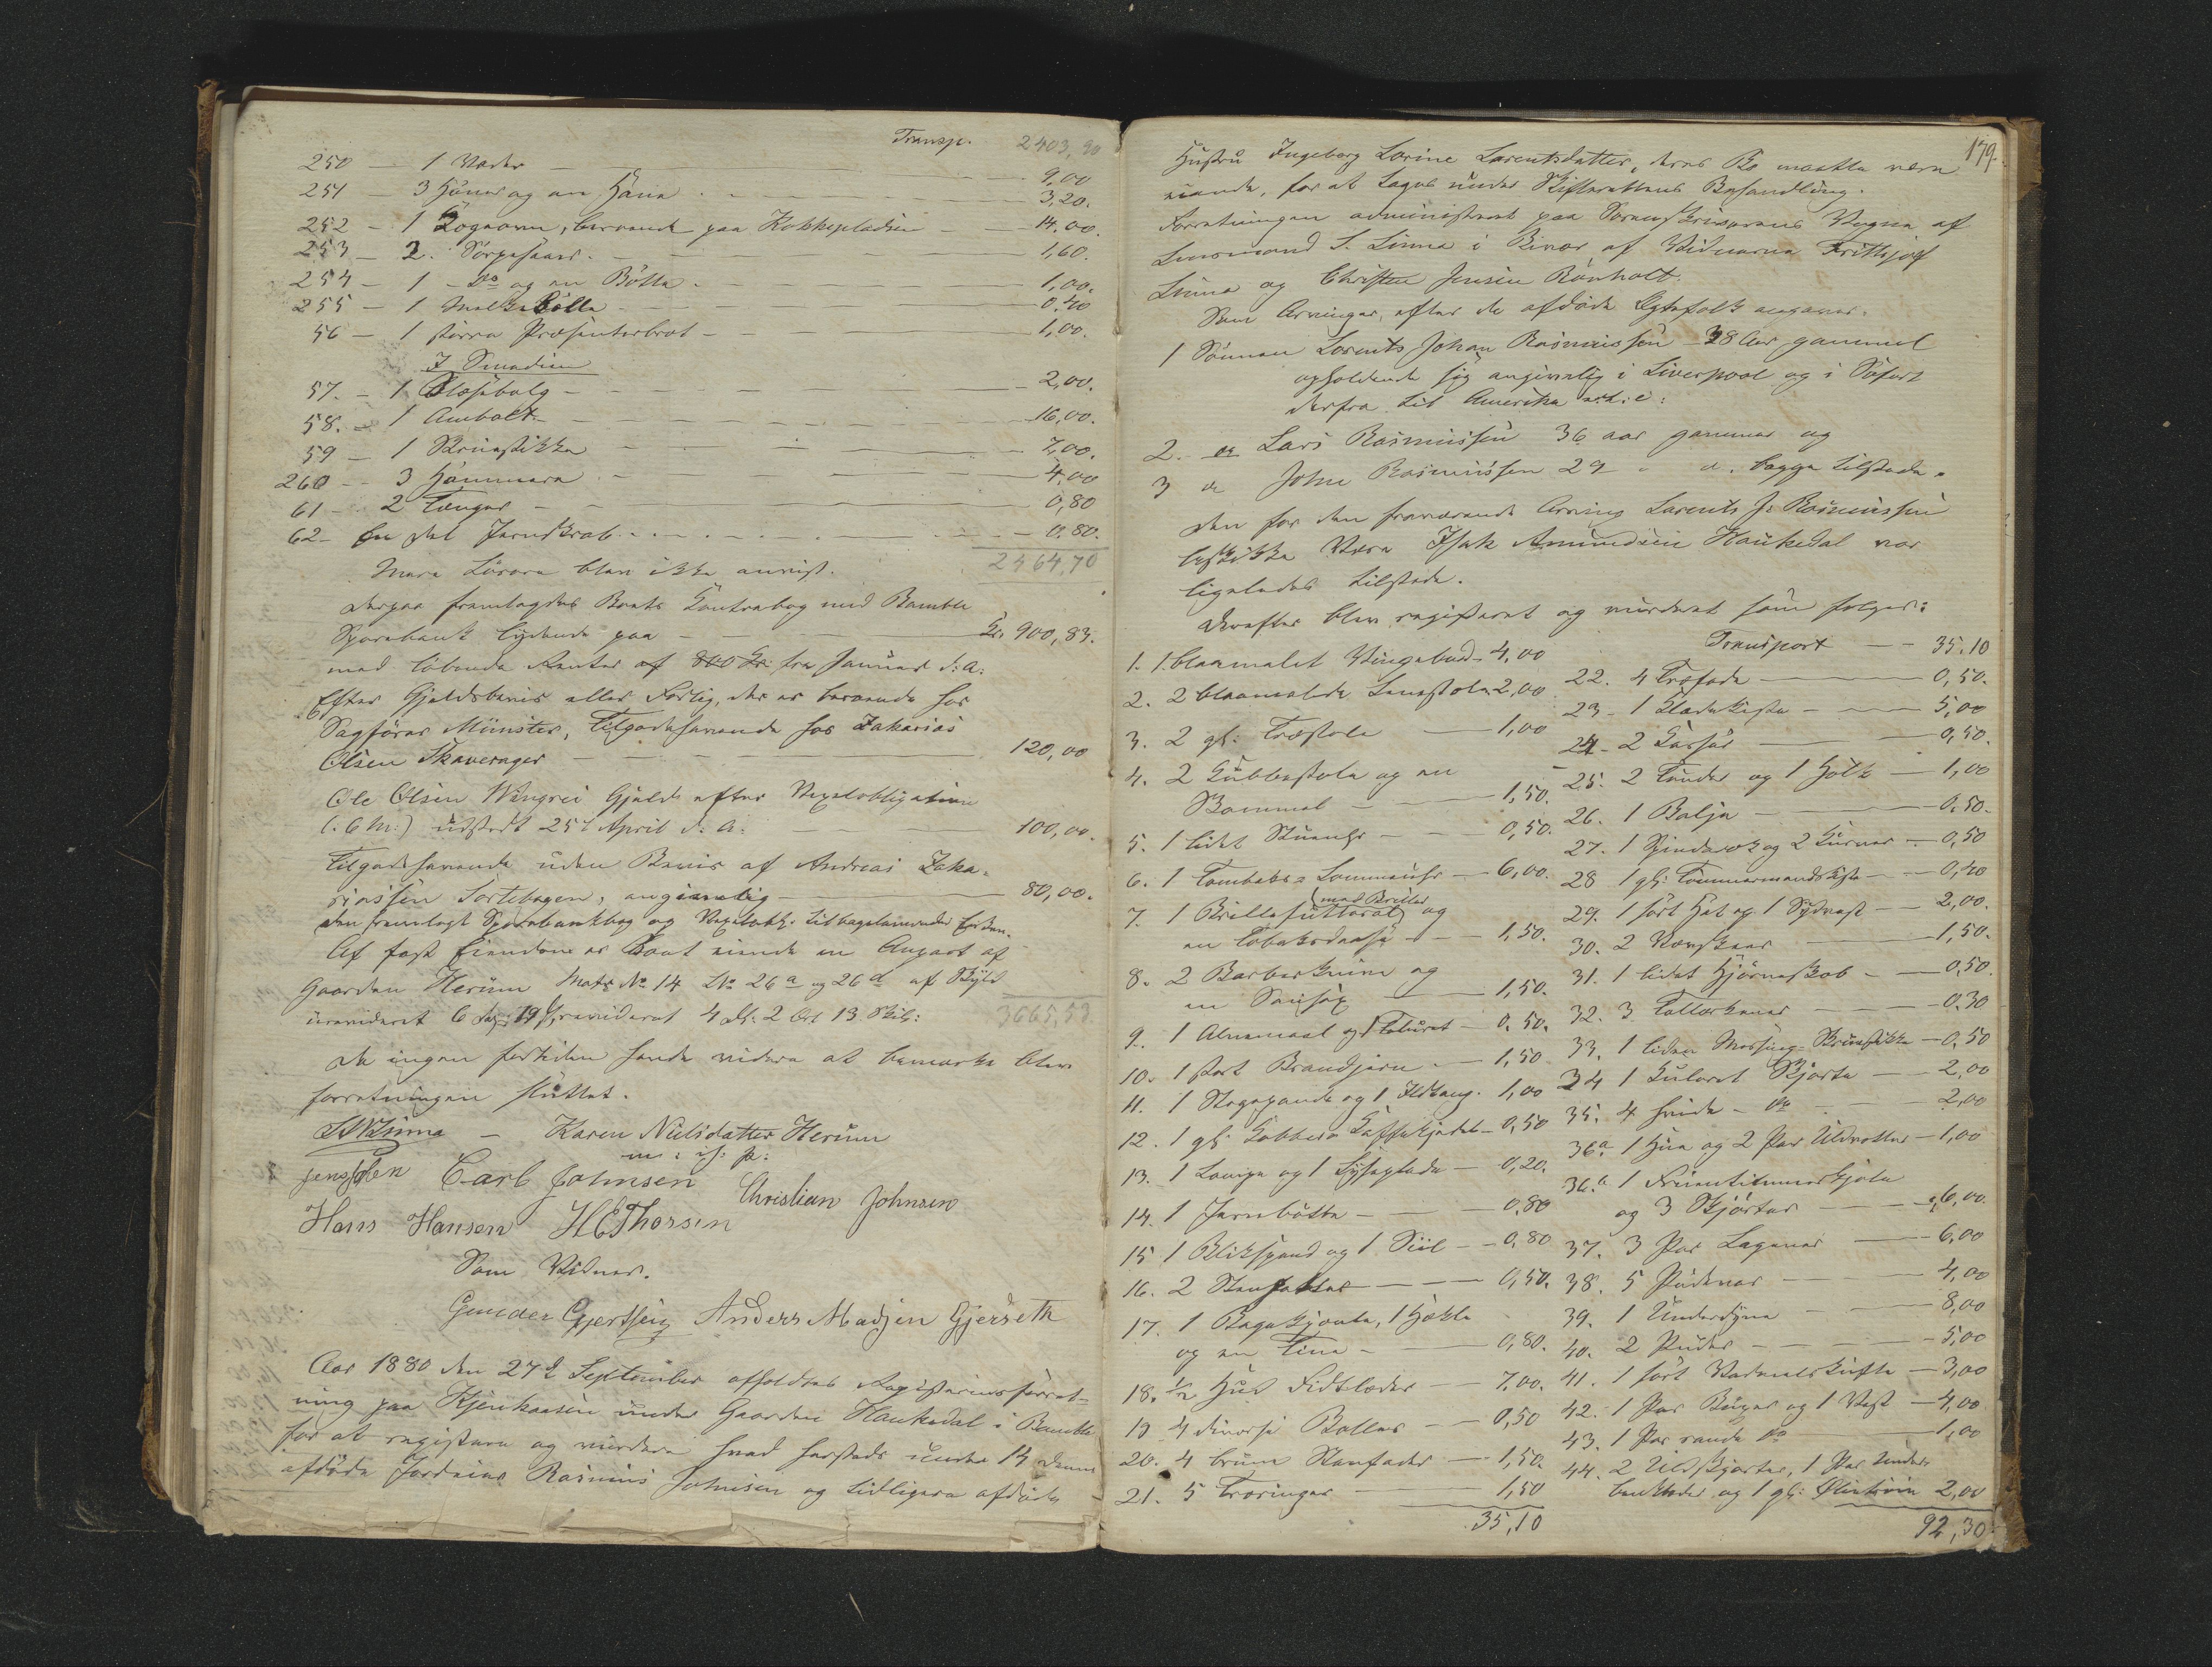 Transp. 2403,90
250 — 1 Væder — 9,00
251 3 Høner og en Hane — 3,20.
252 - 1 Kogeovn, beroende paa Kokkepladsen — 14,00.
253 — 2. Sørpesaaer. — 1,60.
254 - 1 - do og en Bøtte. — 1,00.
255 - 1 Melkebøtte — 0,40
56 — 1 større Præsenterbret — 1,00.
I Smedien
57. - 1 Blæsebelg — 2,00.
58. - 1 Ambolt — 16,00.
59 — 1 Skruestikke — 7,00.
260 - - 3 Hammere — 4,00
61 - 2 Tænger — 0,80
62 - En Del Jernskrab — 0.80.
Mere Løsøre blev ikke anvist. 2464,70
Derpaa fremlagdes Boets Contrabog med Bamble
Sparebank lydende paa — Kr. 900,83.
med løbende Renter af 800 Kr. fra Januar d: A:
Efter Gjeldsbevis eller Forlig, der er beroende hos
Sagfører Münster, Tilgodehavende hos Zakarias
Olsen Skaverager — 120,00
Ole Olsen Gjeld efter Vexelobligation
(: 6 M:) udstedt 25 April d: A: — 100,00.
Tilgodehavende uden Bevis af Andreas Zaka-
riassen Sortebogen, angivelig — 80,00.
Den fremlagte Sparebankbog og Vexelobl. tilbageleveredes Enken.
Af fast Eiendom er Boet eiende en Anpart af
Gaarden Herum Matr No 14 LNo 26a og 26d af Skyld
urevideret 6 19 revideret 4 dl. 2 Ort 13 Skil: 3665,53
Da ingen fortiden havde videre at bemærke blev
forretningen sluttet.
S Linna — Karen Nielsdatter Herum
m: i: p:
Jens Olsen Carl Johnsen Christian Johnsen
Hans Hansen H E Thorsen
Som Vidner.
Gunder Gjertsen Anders Madsen Gjerseth
Aar 1880 den 27de September afholdtes Registreringsforret-
ning paa Kjenkaasen under Gaarden Haukedal i Bamble
for at registrere og vurdere hvad havdes under 14 dennes
afdøde Jordeier Rasmus Johnsen og tidligere afdøde
179.
Hustru Ingeborg Lorine Larentsdatter, deres Bo maatte være
eiende, for at tages under Skifterettens Behandling.
Forretningen administreret paa Sorenskriverens Vegne af
Lensmand S. Linna i Bivær af Vidnerne Frithjof
Linna og Christen Jensen Rønholt.
Som Arvinger efter de afdøde Egtefolk opgaves:
1 Sønnen Lorents Johan Rasmussen 38 Aar gammel
opholdende sig angivelig i Liverpool og i Søfart
derfra til Amerika
2. do Lars Rasmussen 36 aar gammel og
3 do John Rasmussen 29 " d. begge tilstede.
Den for den fraværende Arving Larents J. Rasmussen
beskikkede Værge Isak Amundsen Haukedal var
ligeledes tilstede.
Derefter blev registreret og vurderet som følger:
1. 1 blaamalet Vingebord 4,00
2. 2 blaamalede Lænestole 2,00
3. 2 gl: Træstole — 1,00
4. 2 Kubbestole og en
Skammel — 1,50.
5. 1 lidet Stueuhr — 0,50.
6. 1 Tombaks Lommeuhr — 6,00.
7. 1 Brillefutteral (med Briller) og
en Tobaksdaase — 1,50.
8. 2 Barberknive og
en Sausax — 1,50.
9. 1 Alnemaal og 1 — 0,50.
10. 1 stort Brandjern — 1,50
11. 1 Stegepande og 1 Ildtang. 1,00
12. 1 gl: Kobber Kaffekjedel — 0,50
13. 1 Lampe og 1 Lyseplade — 0,20.
14. 1 Jernbøtte — 0,80
15 1 Blikspand og 1 Siil — 0,80
16. 2 Stenfatter — 0,50.
17. 1 Bagekjævle, 1 Hækle
og en Tine — 0,80.
18. 1/2 Hud Fidtlæder — 7,00.
19 4 diverse Boller — 0,50
20. 4 brune Stenfade — 1,50.
21. 5 Træringer — 1,50
35,10
Transport — 35.10
22. 4 Træfade — 0,50.
23 - 1 Klædekiste — 5,00
24 - 2 Karser — 0,50.
25. 2 Tønder og 1 Holk — 1,00
26. 1 Balje — 0.50.
27. 1 Spinderok og 2 Kurver — 0,50
28 1 gl: Tømmermandskiste — 0,40
29. 1 sort Hat og 1 Sydvest — 2,00.
30. 2 — 1,50.
31. 1 lidet Hjørneskab — 0,50.
32. 3 Tallerkener — 0.30
33. 1 liden Messing-Skruestikke — 0,50
34 1 Kuloret Skjorte — 2,00
35. 4 hvide - do — 2,00
36a 1 Hue og 2 Par Uldvotter — 1,00
36.a 1 Fruentimmerkjole
og 3 Skjørter — 6,00.
37. 3 Par Lagener — 6,00
38. 5 Puder — 4,00
39. 1 Underdyne — 8,00
40. 2 Puder — 5,00
41. 1 sort Vadmelskufte — 3,00
42. 1 Par Buxer og 1 Vest — 4,00
43. 1 Par do — 1,00
44. 2 Uldskjorter, 1 Par Under-
benklæder og 1 gl: 2,00
92,30.